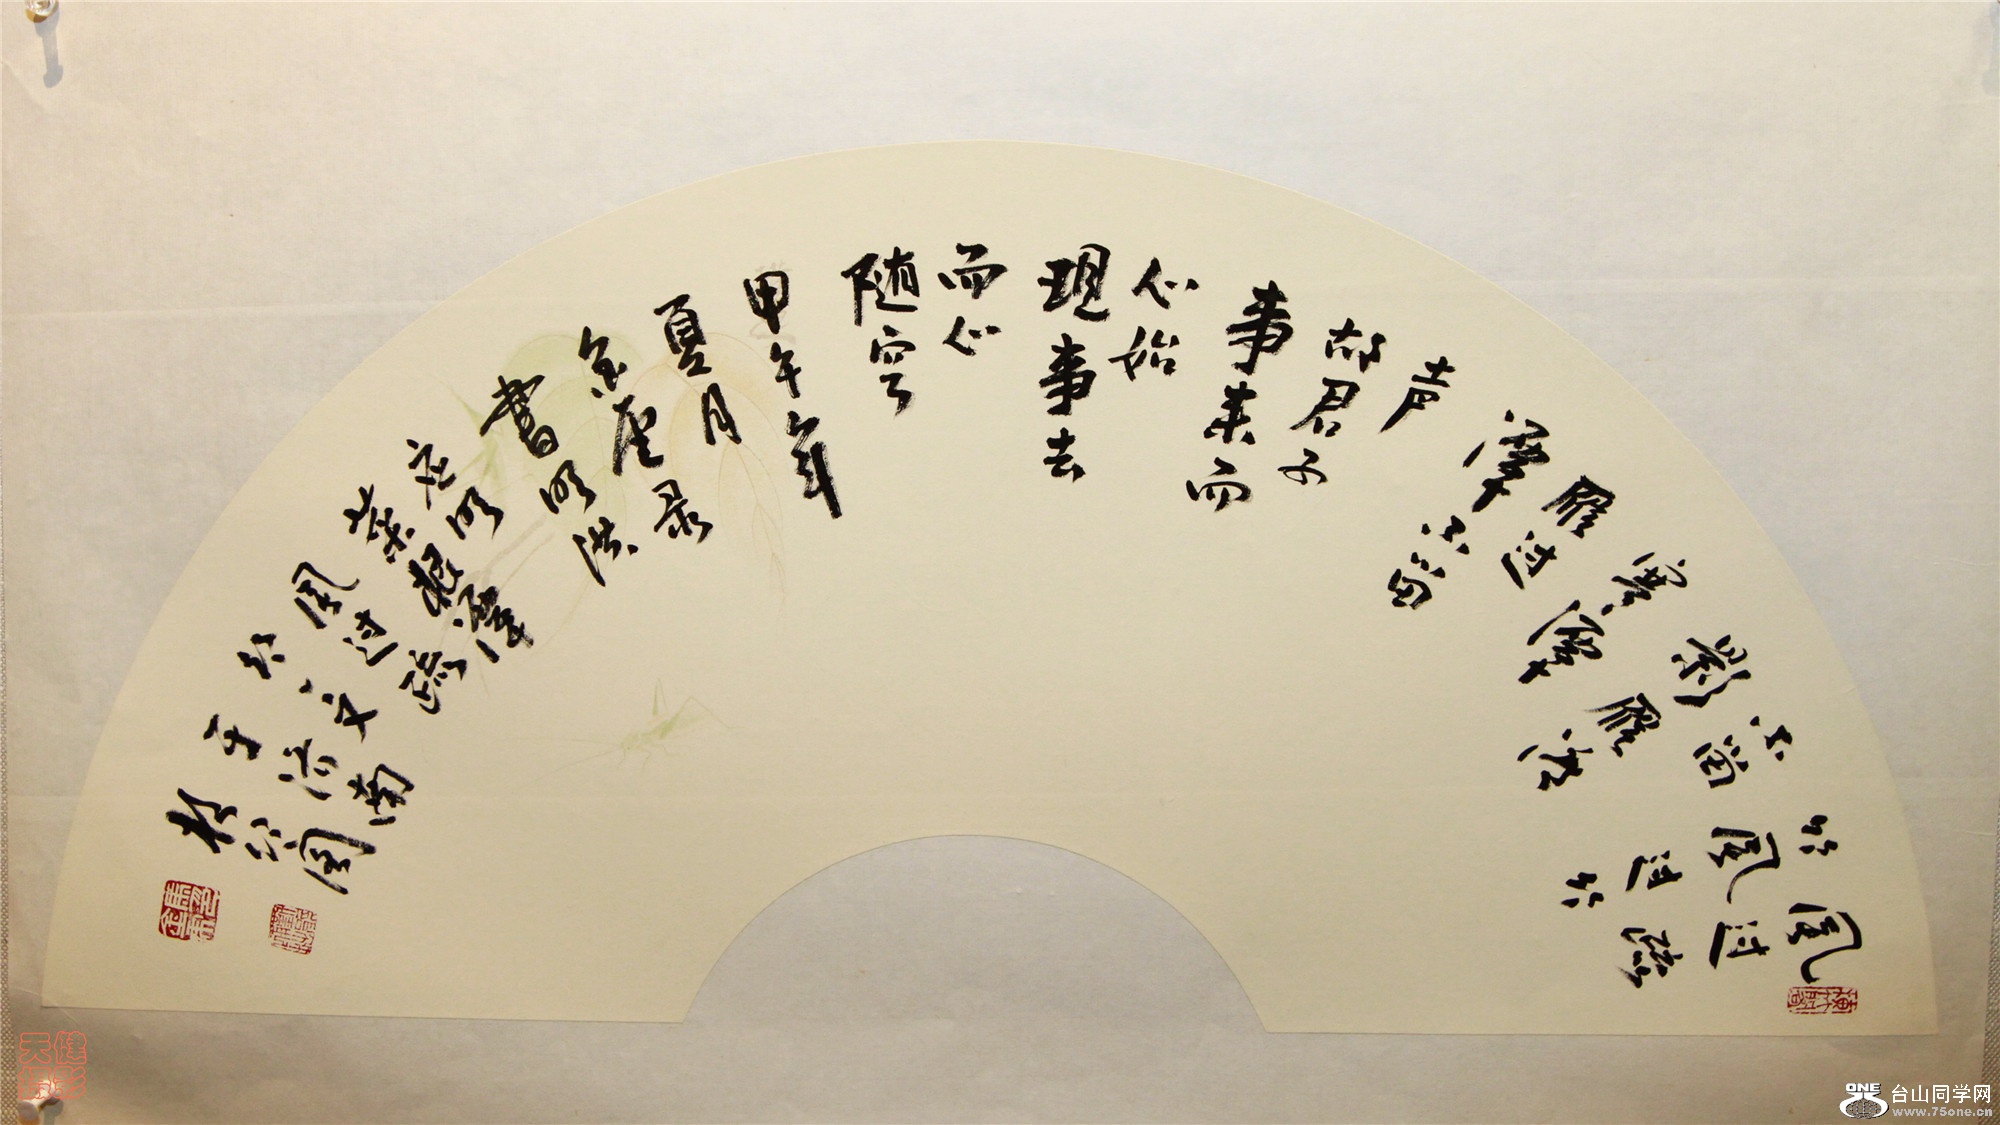 风过疏
竹风过竹
不留
影雁落
寒潭
雁过
潭不留
声
故君子
事来而
心始
现事去
而心
随空
甲午年
夏月
录
书明洪
应明
菜根谭
风过疏
竹之文
于济南
竹阁
天健
摄影
ONE
台山同学网
www.75one.cn